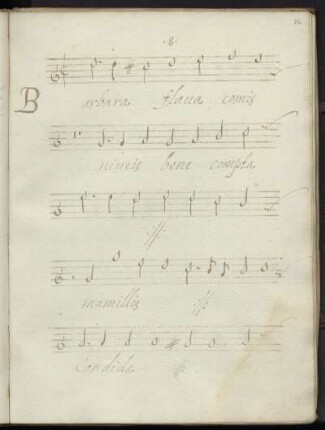 ·8·
Barbara flaua comis
niueis bene compta
mamillis
Candida